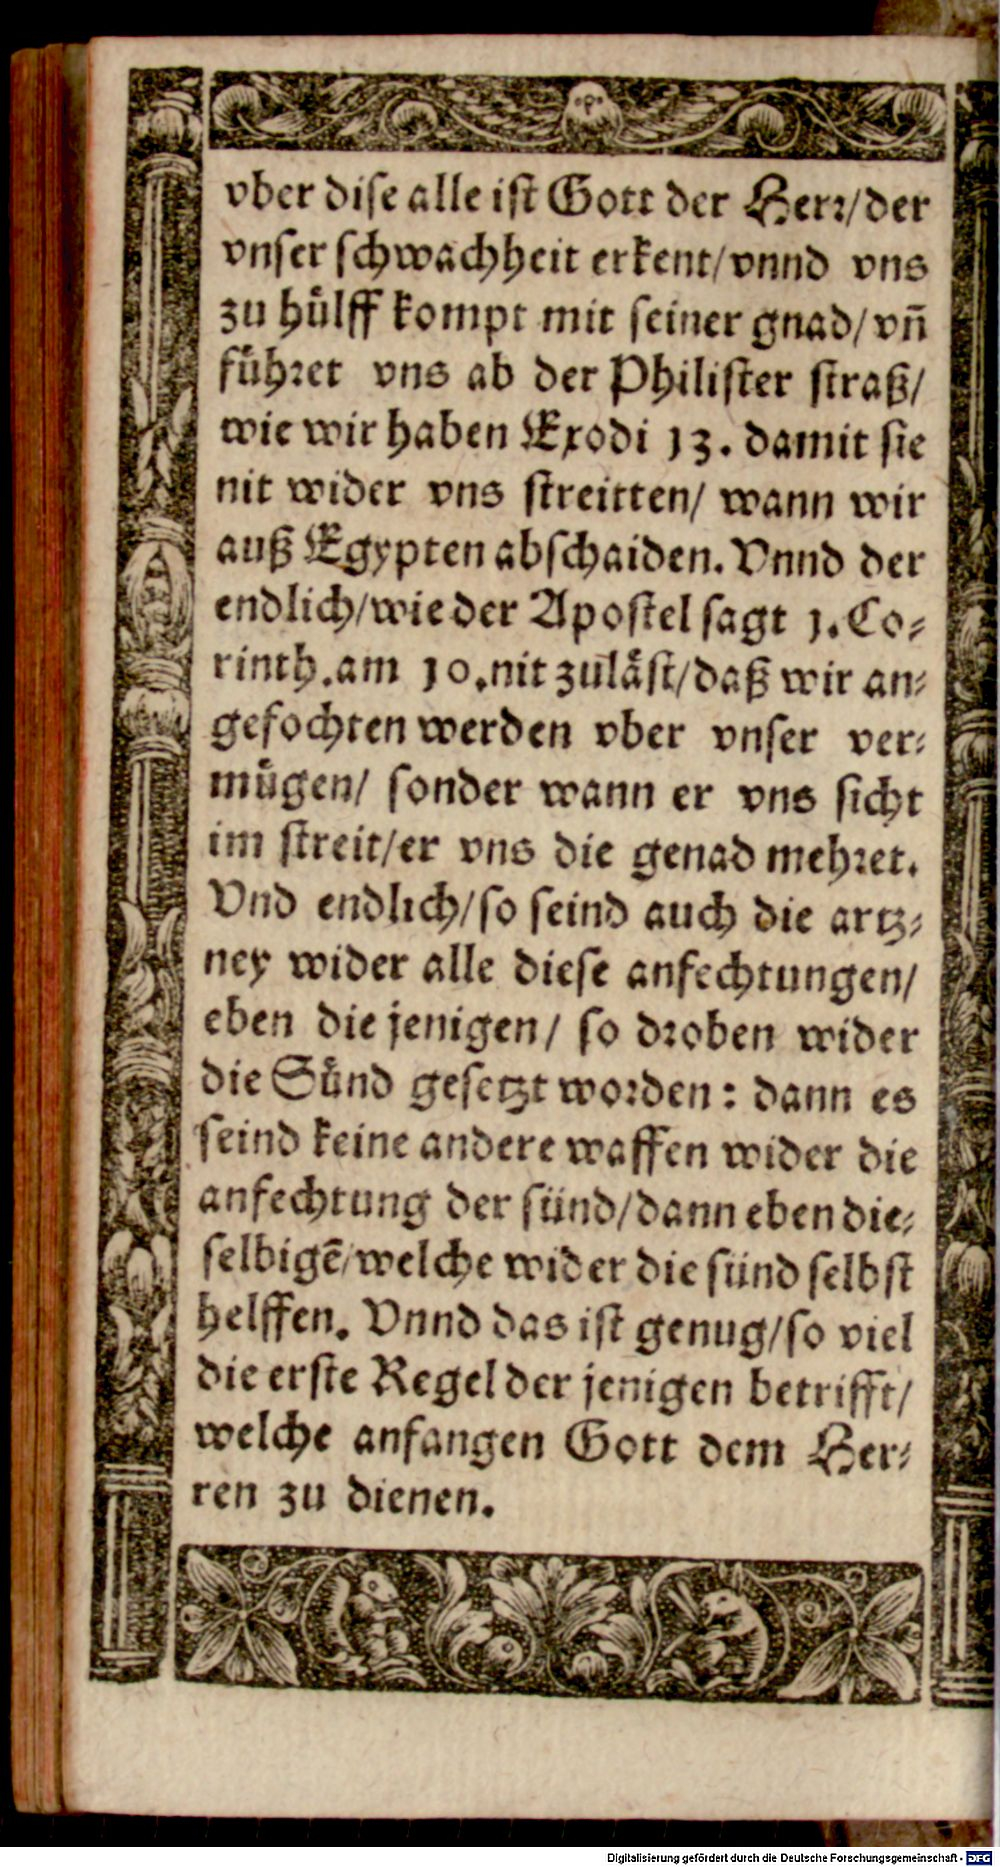 vber dise alle ist Gott der Herr/der
vnser schwachheit erkent/vnnd vns
zu hülff kompt mit seiner gnad/vñ
führet vns ab der Philister straß/
wie wir haben Exodi 13. damit sie
nit wider vns streitten/ wann wir
auß Egypten abschaiden. Vnnd der
endlich/wie der Apostel sagt 1. Co⸗
rinth. am 10. nit zuläst/daß wir an⸗
gefochten werden vber vnser ver⸗
mügen/ sonder wann er vns sicht
im streit/er vns die genad mehret.
Vnd endlich/so seind auch die artz⸗
ney wider alle diese anfechtungen/
eben die jenigen/ so droben wider
die Sünd gesetzt worden: dann es
seind keine andere waffen wider die
anfechtung der sünd/dann eben die⸗
selbigẽ/welche wider die sünd selbst
helffen. Vnnd das ist genug/so viel
die erste Regel der jenigen betrifft/
welche anfangen Gott dem Her⸗
ren zu dienen.
Digitalisierung gefördert durch die Deutsche Forschungsgemeinschaft - DFG